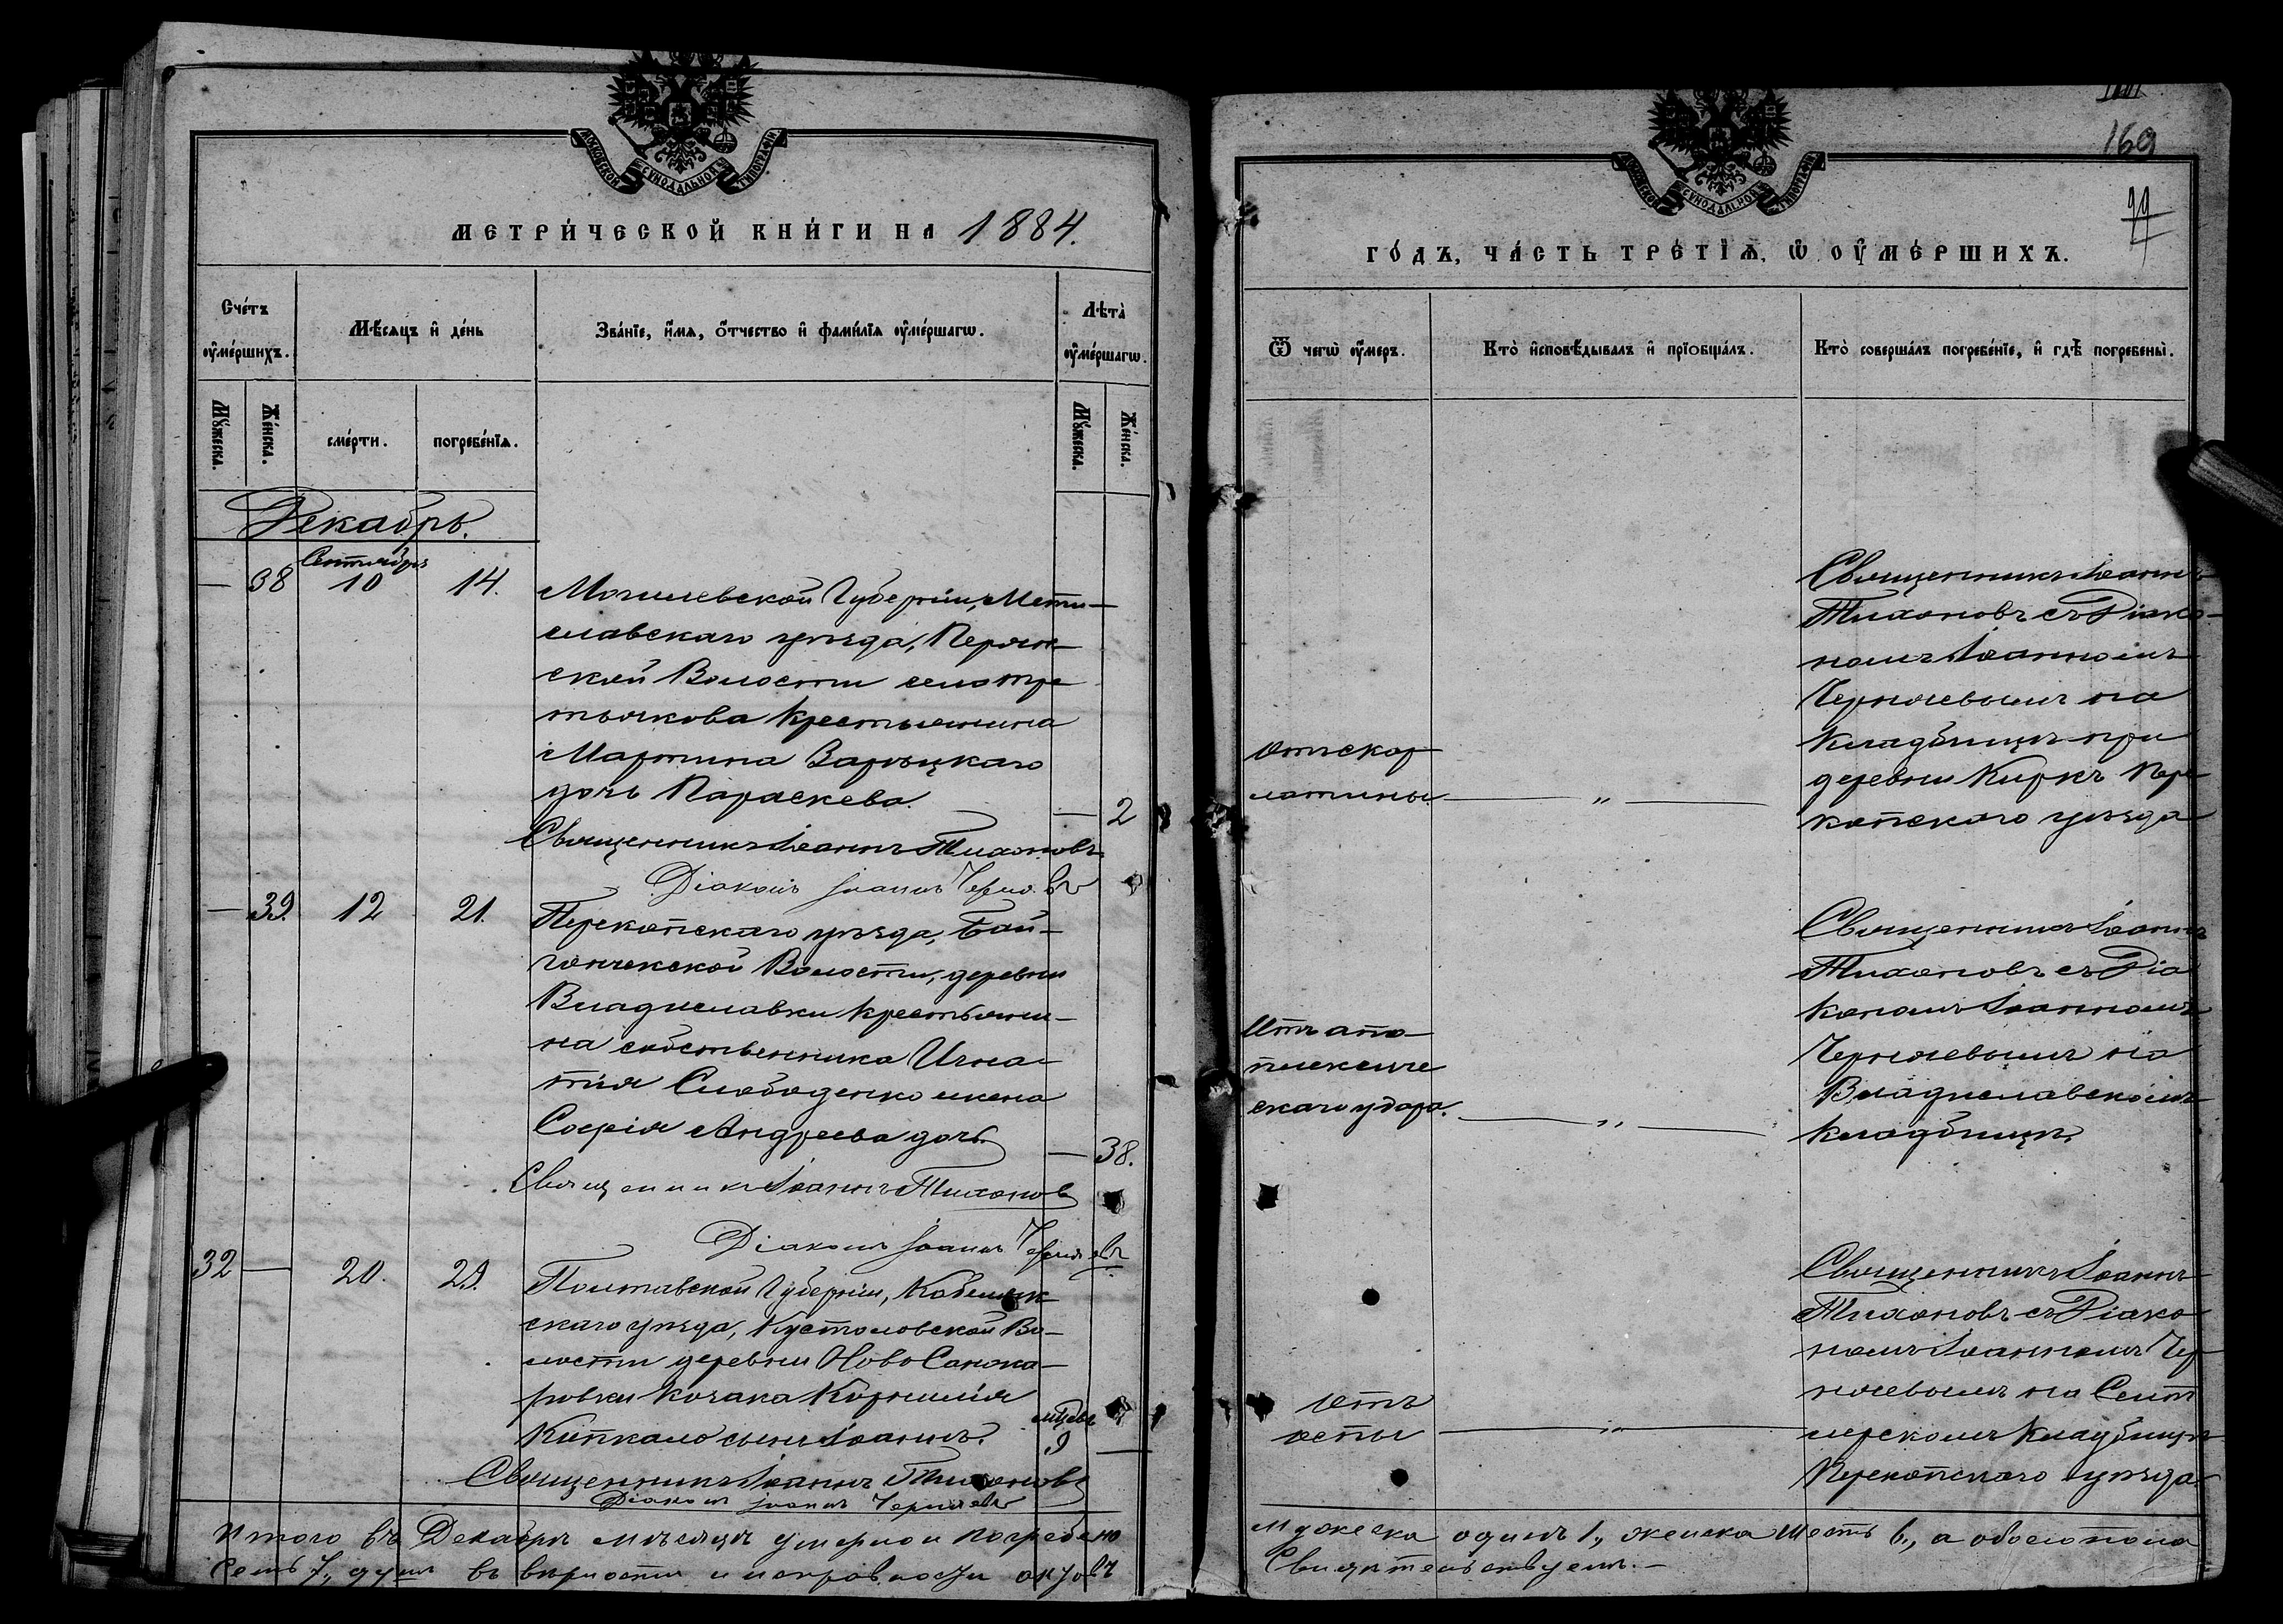 МОСКОВСКОЙ СУНОДАЛЬНОЙ ТИПОГРАФІИ
МЕТРИ́ЧЕСКОЙ КНИ́ГИ НА 1884.
Счетъ оумершихъ.
Мѣсяцъ и день
Званіе, имя, отчество и фамилія оумершагѡ.
Лѣта оумершагѡ.
Мужеска.
Женска.
смерти.
погребенія.
Мужеска.
Женска.
Декабрь.
— 38 Сентября 10 14.
Могилевской Губерніи, Мсти-
славскаго уѣзда,
ской Волости село Тре
тьякова крестьянина
Мартина Варъцкаго
дочь Параскева. — 2
Священникъ Іоаннъ Тихоновъ
Діаконъ Іоаннъ
— 39. 12 21.
Перекопскаго уѣзда, Бай-
гончекской Волости, деревни
Владиславки крестьяни-
на собственника Игна-
тія Слободенко жена
Софія Андреева дочь. — 38.
Священникъ Іоаннъ Тихоновъ
Діаконъ Іоаннъ
32 — 20. 29.
Полтавской Губерніи, Кобеляк
скаго уѣзда, Кустоловской Во-
лости деревни Ново
ровки козака Корнилія
Кипкало сынъ Іоаннъ. мцев 9 —
Священникъ Іоаннъ Тихоновъ
Діаконъ Іоаннъ
Итого въ Декабрѣ мѣсяцѣ умерло и погребено
семь 7., душъ въ вѣрности и исправности актовъ
169
99
МОСКОВСКОЙ СУНОДАЛЬНОЙ ТИПОГРАФІИ
ГОДЪ, ЧАСТЬ ТРЕТІЯ, Ѡ ОУМЕРШИХЪ.
Ѿ чегѡ оумеръ.
Кто исповѣдывалъ и пріобщалъ.
Кто совершалъ погребеніе, и гдѣ погребены.
Отъ скар
латины — „ —
Священникъ Іоаннъ
Тихоновъ съ Діако-
номъ Іоанномъ
Черняевымъ на
Кладбищѣ при
деревни Киркъ Пере
копскаго уѣзда
Отъ апо-
плексиче
скаго удара. — „ —
Священникъ Іоаннъ
Тихоновъ съ Діа
кономъ Іоанномъ
Черняевымъ на
Владиславскомъ
кладбищѣ.
отъ
оспы — „ —
Священникъ Іоаннъ
Тихоновъ съ Діако
номъ Іоанномъ Чер
няевымъ на
Кладбищѣ
Перекопскаго уѣзда
мужеска одинъ 1., женска шесть 6., а обоего пола
Свидѣтельствуемъ.—